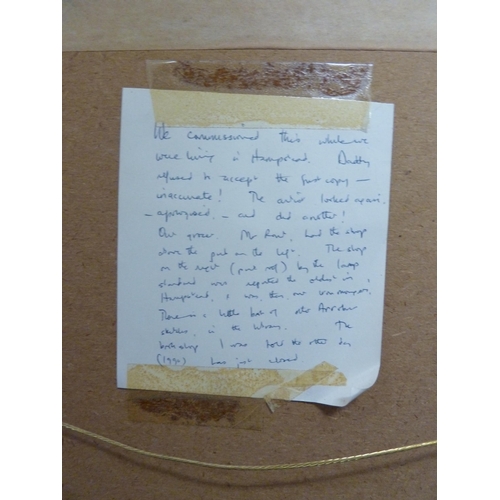 We commissioned this while we
were living in Hampstead. Daddy
refused to accept the first copy —
inaccurate! The artist looked again,
- apologised, - and did another!
Our grocer, Mr had the shop
above the on the left. The shop
on the right (part red) by the lamp
standard was reputed the oldest in
Hampstead, & was then our
There is a little book of other
sketches, in the library. The
bookshop I was told the other day
(1990) has just closed